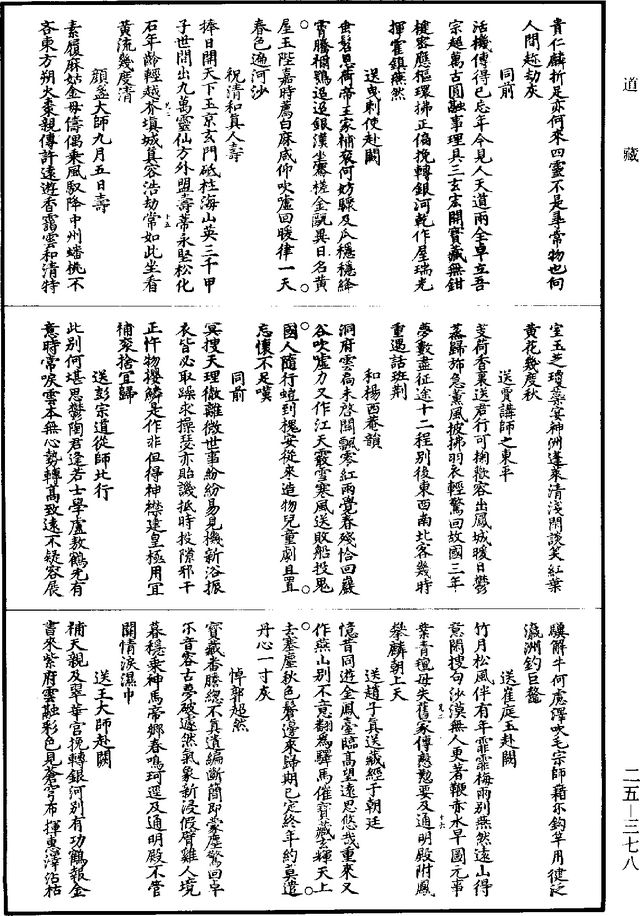 道藏
貴仁麟折足亦何來四靈不是尋常物也向
人間趁劫灰
同前
活機傳得已忘年今見人天道兩全卓立吾
宗越萬古圓融事理具三玄宏開寶藏無鉗
鍵容應樞環拂正偏挽轉銀河乾作屋瑞光
揮霍鎮燕然
送曳剌使赴闕
垂髫恩荷帝王家補袞何妨驟及瓜穩穩絳
霄騰禰鶚迢迢銀漢坐騫槎金甌異日名黄
屋玉陛嘉時薦白麻咸仰吹噓回暖律一天
春色遍河沙
祝清和真人壽
捧日開天下玉京玄門砥柱海山英三千甲
子世間出九萬靈仙方外盟壽蒂永堅松化
石年齡輕越芥填城真容浩劫常如此坐看
黄流幾度清
顔盈大師九月五日壽
素履麻姑金母儔偶乘風馭降中州蟠桃不
吝東方朔火棗親傳許遠遊香靄雲和清特
室玉芝瓊蘂宴神洲蓬萊清淺閑談笑紅葉
黄花幾度秋
送賈講師之東平
芰荷香裏送君行可掬歡容出鳳城暖日鬱
蒸歸斾急薰風披拂羽衣輕驚回故國三年
夢數盡征途十二程别後東西南北客幾時
重遇話班荆
和楊西菴韻
洞府雲高未啓關飄零紅雨覺春殘恰回巖
谷吹噓力又作江天霰雪寒風送敗船投鬼
國人隨行螘到槐安從來造物兒童劇且置
忘懷不足嘆
同前
冥搜天理微離微世事紛紛易見機新浴振
衣皆必取躁求操瑟亦貽譏抵時投隙邪干
正忤物攖鱗是作非但得神襟建皇極用冝
補衮捨冝歸
送彭宗道從師北行
此别何堪思鬱陶君逢若士學盧敖鶴充有
意時常唳雲本無心勢轉高致遠不疑容展
驥解牛何慮澤吹毛宗師籍尔鈎竿用徤泛
瀛洲釣巨鼇
送崔庭玉赴闕
竹月松風伴有年霏霏梅雨别燕然遠山得
意閑搜句沙漠無人更著鞭赤水早圖元事
業青氊毋失舊家傳慇懃要及通明殿附鳳
攀麟朝上天
送趙子真送藏經子朝廷
憶昔同遊金鳳臺臨高望遠思悠哉重來又
作燕山别不意翻為驛馬催寳藏輝天上
去塞塵秋色鬢邊來歸期已定終年約莫遣
丹心一寸灰
悼郭超然
寳藏香騰總不真遺編斷簡即蒙塵驚回卓
尔音容古夢破遽然氣象新没假臂雞人境
暮穩乘神馬帝鄉春鳴珂逕及通明殿不管
開情淚濕巾
送王大師赴闕
補天親及翠華宮挽轉銀河别有功鶴報金
書來紫府雲融彩色見蒼穹布揮東澤沾枯
二五—三七八